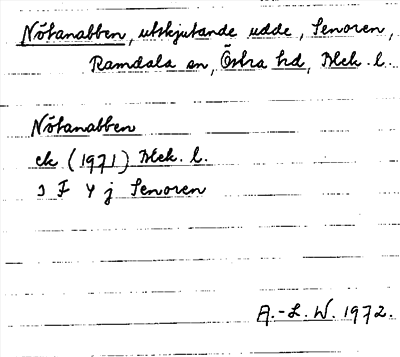 Nötanabben, utskjutande udde, Senoren,
Ramdala sn, Östra hd, Blek. l.
Nötanabben
ek (1971) Blek. l.
3 F 4 j Senoren
A.-L. W. 1972.